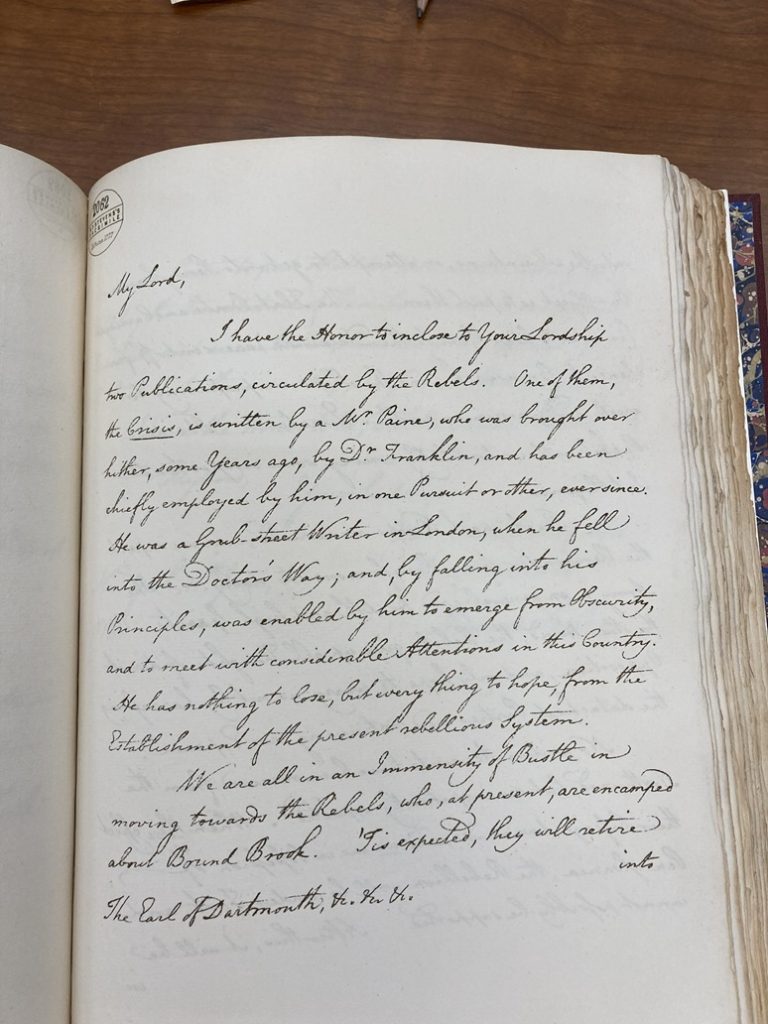 2062
STEVENS'S
FACSIMILE
My Lord,
I have the Honor to inclose to Your Lordship
two Publications, circulated by the Rebels. One of them,
the Crisis, is written by a Mr. Paine, who was brought over
hither, some Years ago, by Dr. Franklin, and has been
chiefly employed by him, in one Pursuit or other, ever since.
He was a Grub-street Writer in London, when he fell
into the Doctor's Way; and, by falling into his
Principles, was enabled by him to emerge from Obscurity,
and to meet with considerable Attentions in this Country.
He has nothing to lose, but every thing to hope, from the
Establishment of the present rebellious System.
We are all in an Immensity of Bustle in
moving towards the Rebels, who, at present, are encamped
about Bound Brook. 'Tis expected, they will retire
into
The Earl of Dartmouth, &c. &c. &c.